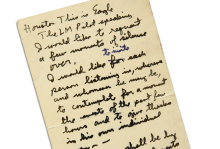 Houston This is Eagle
The LM Pilot speaking
I would like to request
a few moments of silence
over.
to invite
I would like for each
person listening in, wherever
and whomever he may be,
to contemplate for a moment
the events of the past few
hours and to give thanks
in his own individual
way —
shall be by